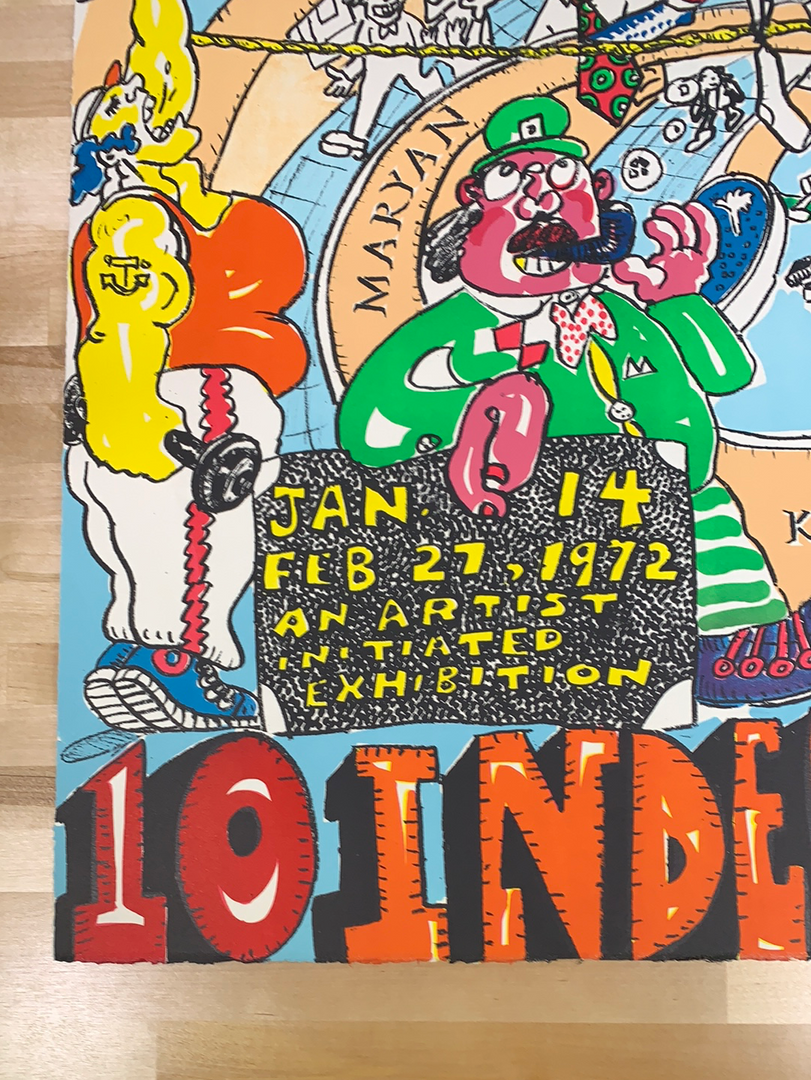 MARYAN
JAN. 14
FEB 27, 1972
AN ARTIST
INITIATED
EXHIBITION
K
M
10 INDE